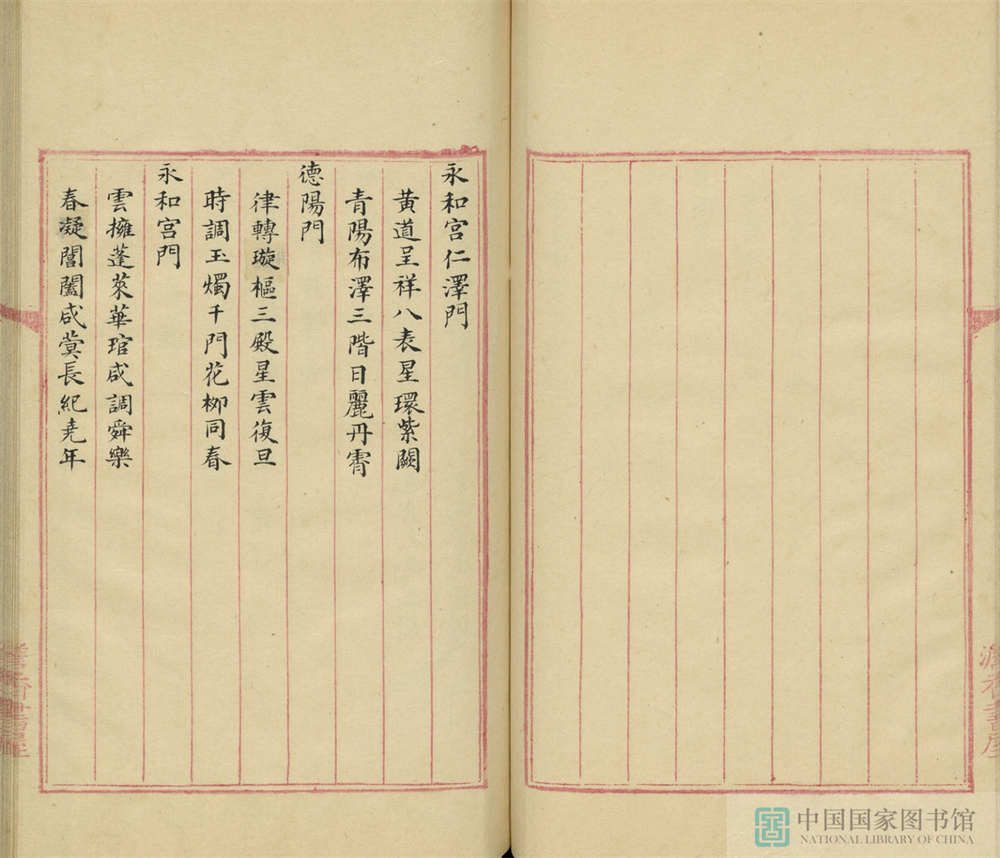 永和宮仁澤門
黃道呈祥八表星環紫闕
青陽布澤三階日麗丹霄
德陽門
律轉璇樞三殿星雲復旦
時調玉燭千門花柳同春
永和宮門
雲擁蓬萊華琯咸調舜樂
春凝閶闔咸蓂長紀堯年
中国国家图书馆
NATIONAL LIBRARY OF CHINA